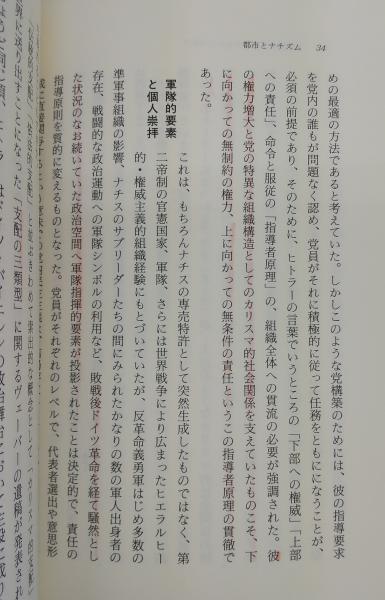 都市とナチズム 34
めの最適の方法であると考えていた。しかしこのような党構築のためには、彼の指導要求
を党内の誰もが問題なく認め、党員がそれに積極的に従って任務をともにになうことが、
必須の前提であり、そのために、ヒトラーの言葉でいうところの「下部への権威」「上部
への責任」、命令と服従の「指導者原理」の、組織全体への貫流の必要が強調された。彼
の権力増大と党の特異な組織構造としてのカリスマ的社会関係を支えていたものこそ、下
に向かっての無制約の権力、上に向かっての無条件の責任というこの指導者原理の貫徹で
あった。
軍隊的要素
と個人崇拝
これは、もちろんナチスの専売特許として突然生成したものではなく、第
二帝制の官憲国家、軍隊、さらには世界戦争により広まったヒエラルヒー
的・権威主義的組織経験にもとづいていたが、反革命義勇軍はじめ多数の
準軍事組織の影響、ナチスのサブリーダーたちの間にみられたかなりの数の軍人出身者の
存在、戦闘的な政治運動への軍隊シンボルの利用など、敗戦後ドイツ革命を経て騒然とし
た状況のなお続いていた政治空間へ軍隊指揮的要素が投影されたことは決定的で、責任の
指導原則を質的に変えるものとなった。党員がそれぞれのレベルで、代表者選出や意思形
送り出すことになった「支配の三類型」に関するヴェーバーの遺稿が発表され